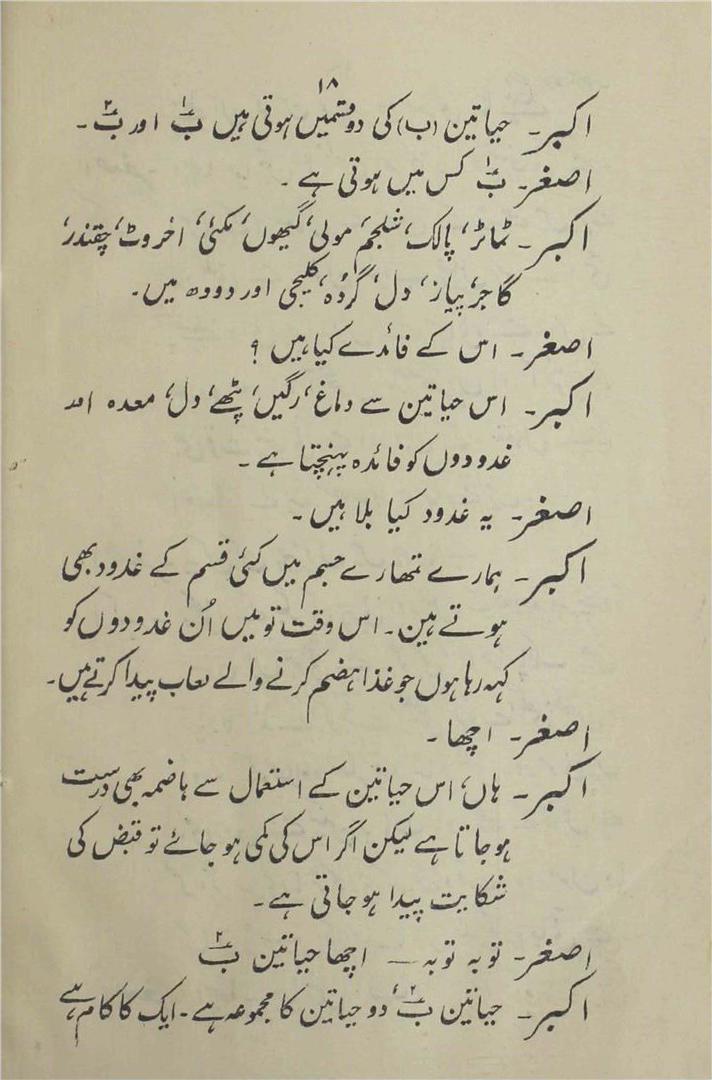 ۱۸
اکبر۔ حیاتین (ب) کی دو قسمیں ہوتی ہیں ب۱ اور ب۲۔
اصغر۔ ب۱ کس میں ہوتی ہے۔
اکبر۔ ٹماٹر، پالک، شلجم، مولی، گیہوں، مکئی، اخروٹ، چقندر،
گاجر، پیاز، دل، گردہ، کلیجی اور دودھ میں۔
اصغر۔ اس کے فائدے کیا ہیں؟
اکبر۔ اس حیاتین سے دماغ، رگیں، پٹھے، دل، معدہ اور
غدودوں کو فائدہ پہنچتا ہے۔
اصغر۔ یہ غدود کیا بلا ہیں۔
اکبر۔ ہمارے تمھارے جسم میں کئی قسم کے غدود بھی
ہوتے ہین۔ اس وقت تو میں اُن غدودوں کو
کہہ رہا ہوں جو غذا ہضم کرنے والے لعاب پیدا کرتے ہیں۔
اصغر۔ اچھا۔
اکبر۔ ہاں، اس حیاتین کے استعمال سے ہاضمہ بھی درست
ہو جاتا ہے لیکن اگر اس کی کمی ہو جائے تو قبض کی
شکایت پیدا ہو جاتی ہے۔
اصغر۔ توبہ توبہ — اچھا حیاتین ب۲
اکبر۔ حیاتین ب۲، دو حیاتین کا مجموعہ ہے۔ ایک کا کام ہے